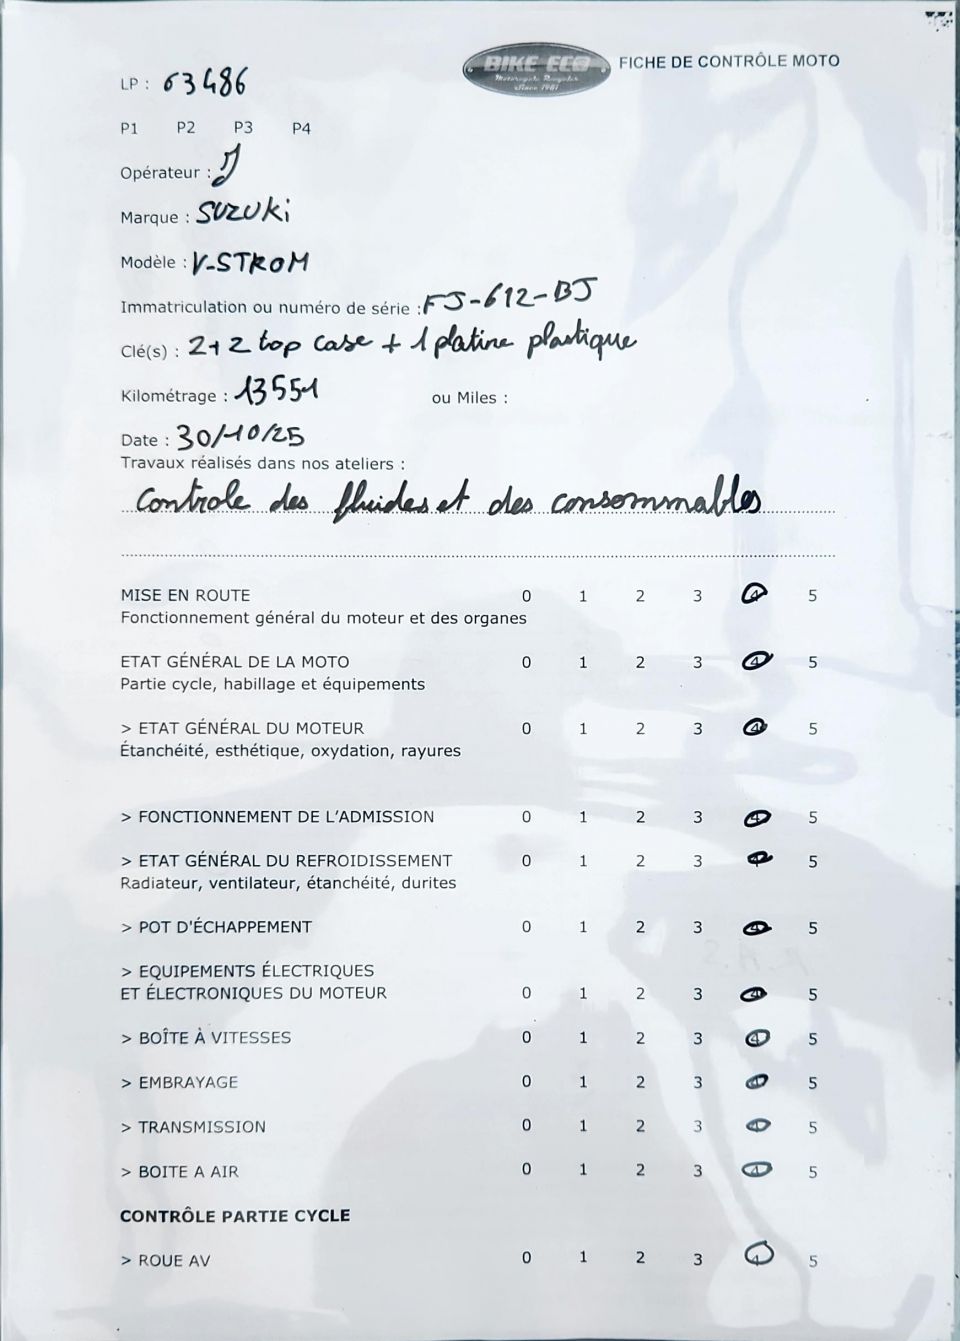 BIKE ECO
Motorcycle Recycler
Since 1981
FICHE DE CONTRÔLE MOTO
LP : 63486
P1 P2 P3 P4
Opérateur : J
Marque : SUZUKi
Modèle : V-STROM
Immatriculation ou numéro de série : FJ-612-BJ
Clé(s) : 2+2 top case + 1 platine plastique
Kilométrage : 13551 ou Miles :
Date : 30/10/25
Travaux réalisés dans nos ateliers :
Controle des fluides et des consommables
MISE EN ROUTE 0 1 2 3 4 5
Fonctionnement général du moteur et des organes
ETAT GÉNÉRAL DE LA MOTO 0 1 2 3 4 5
Partie cycle, habillage et équipements
> ETAT GÉNÉRAL DU MOTEUR 0 1 2 3 4 5
Étanchéité, esthétique, oxydation, rayures
> FONCTIONNEMENT DE L'ADMISSION 0 1 2 3 4 5
> ETAT GÉNÉRAL DU REFROIDISSEMENT 0 1 2 3 4 5
Radiateur, ventilateur, étanchéité, durites
> POT D'ÉCHAPPEMENT 0 1 2 3 4 5
> EQUIPEMENTS ÉLECTRIQUES
ET ÉLECTRONIQUES DU MOTEUR 0 1 2 3 4 5
> BOÎTE À VITESSES 0 1 2 3 4 5
> EMBRAYAGE 0 1 2 3 4 5
> TRANSMISSION 0 1 2 3 4 5
> BOITE A AIR 0 1 2 3 4 5
CONTRÔLE PARTIE CYCLE
> ROUE AV 0 1 2 3 4 5